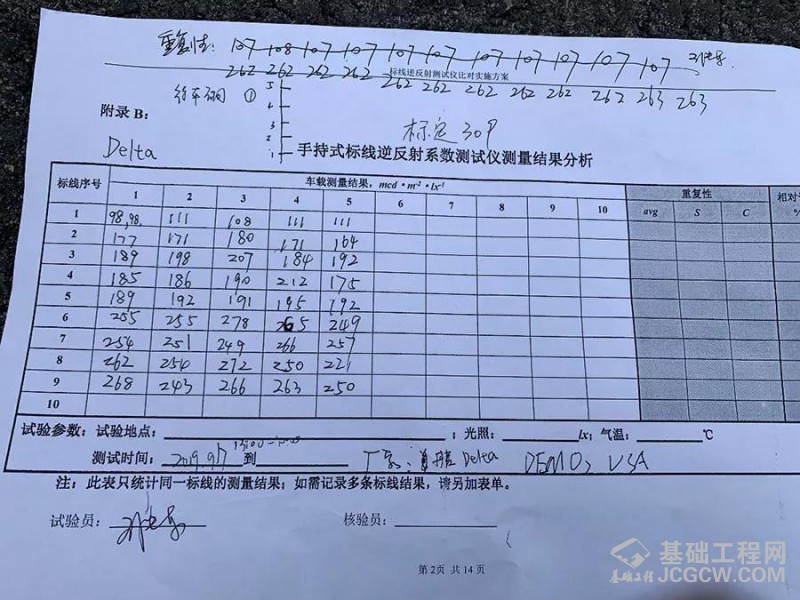 重复性: 107 108 107 107 107 107 107 107 107 107 107
标线逆反射测试仪比对实施方案
262 262 262 262 262 262 262 262 262 262 263 263
① 5
4
3
2
1
附录 B:
标定 30P
Delta
手持式标线逆反射系数测试仪测量结果分析
标线序号 车载测量结果, mcd·m⁻²·lx⁻¹ 重复性 相对
1 2 3 4 5 6 7 8 9 10 avg S C %
1 98, 98, 111 108 111 111
2 177 171 180 171 164
3 189 198 207 184 192
4 185 186 190 212 175
5 189 192 191 195 192
6 255 255 278 265 249
7 254 251 249 266 257
8 262 254 272 250 221
9 268 243 266 263 250
10
试验参数: 试验地点: ; 光照: lx; 气温: ℃
测试时间: 2019.9.17 到 厂家: Delta DEMO, USA
注: 此表只统计同一标线的测量结果; 如需记录多条标线结果, 请另加表单。
试验员: 核验员:
第 2 页 共 14 页
基础工程网
JCGCW.COM